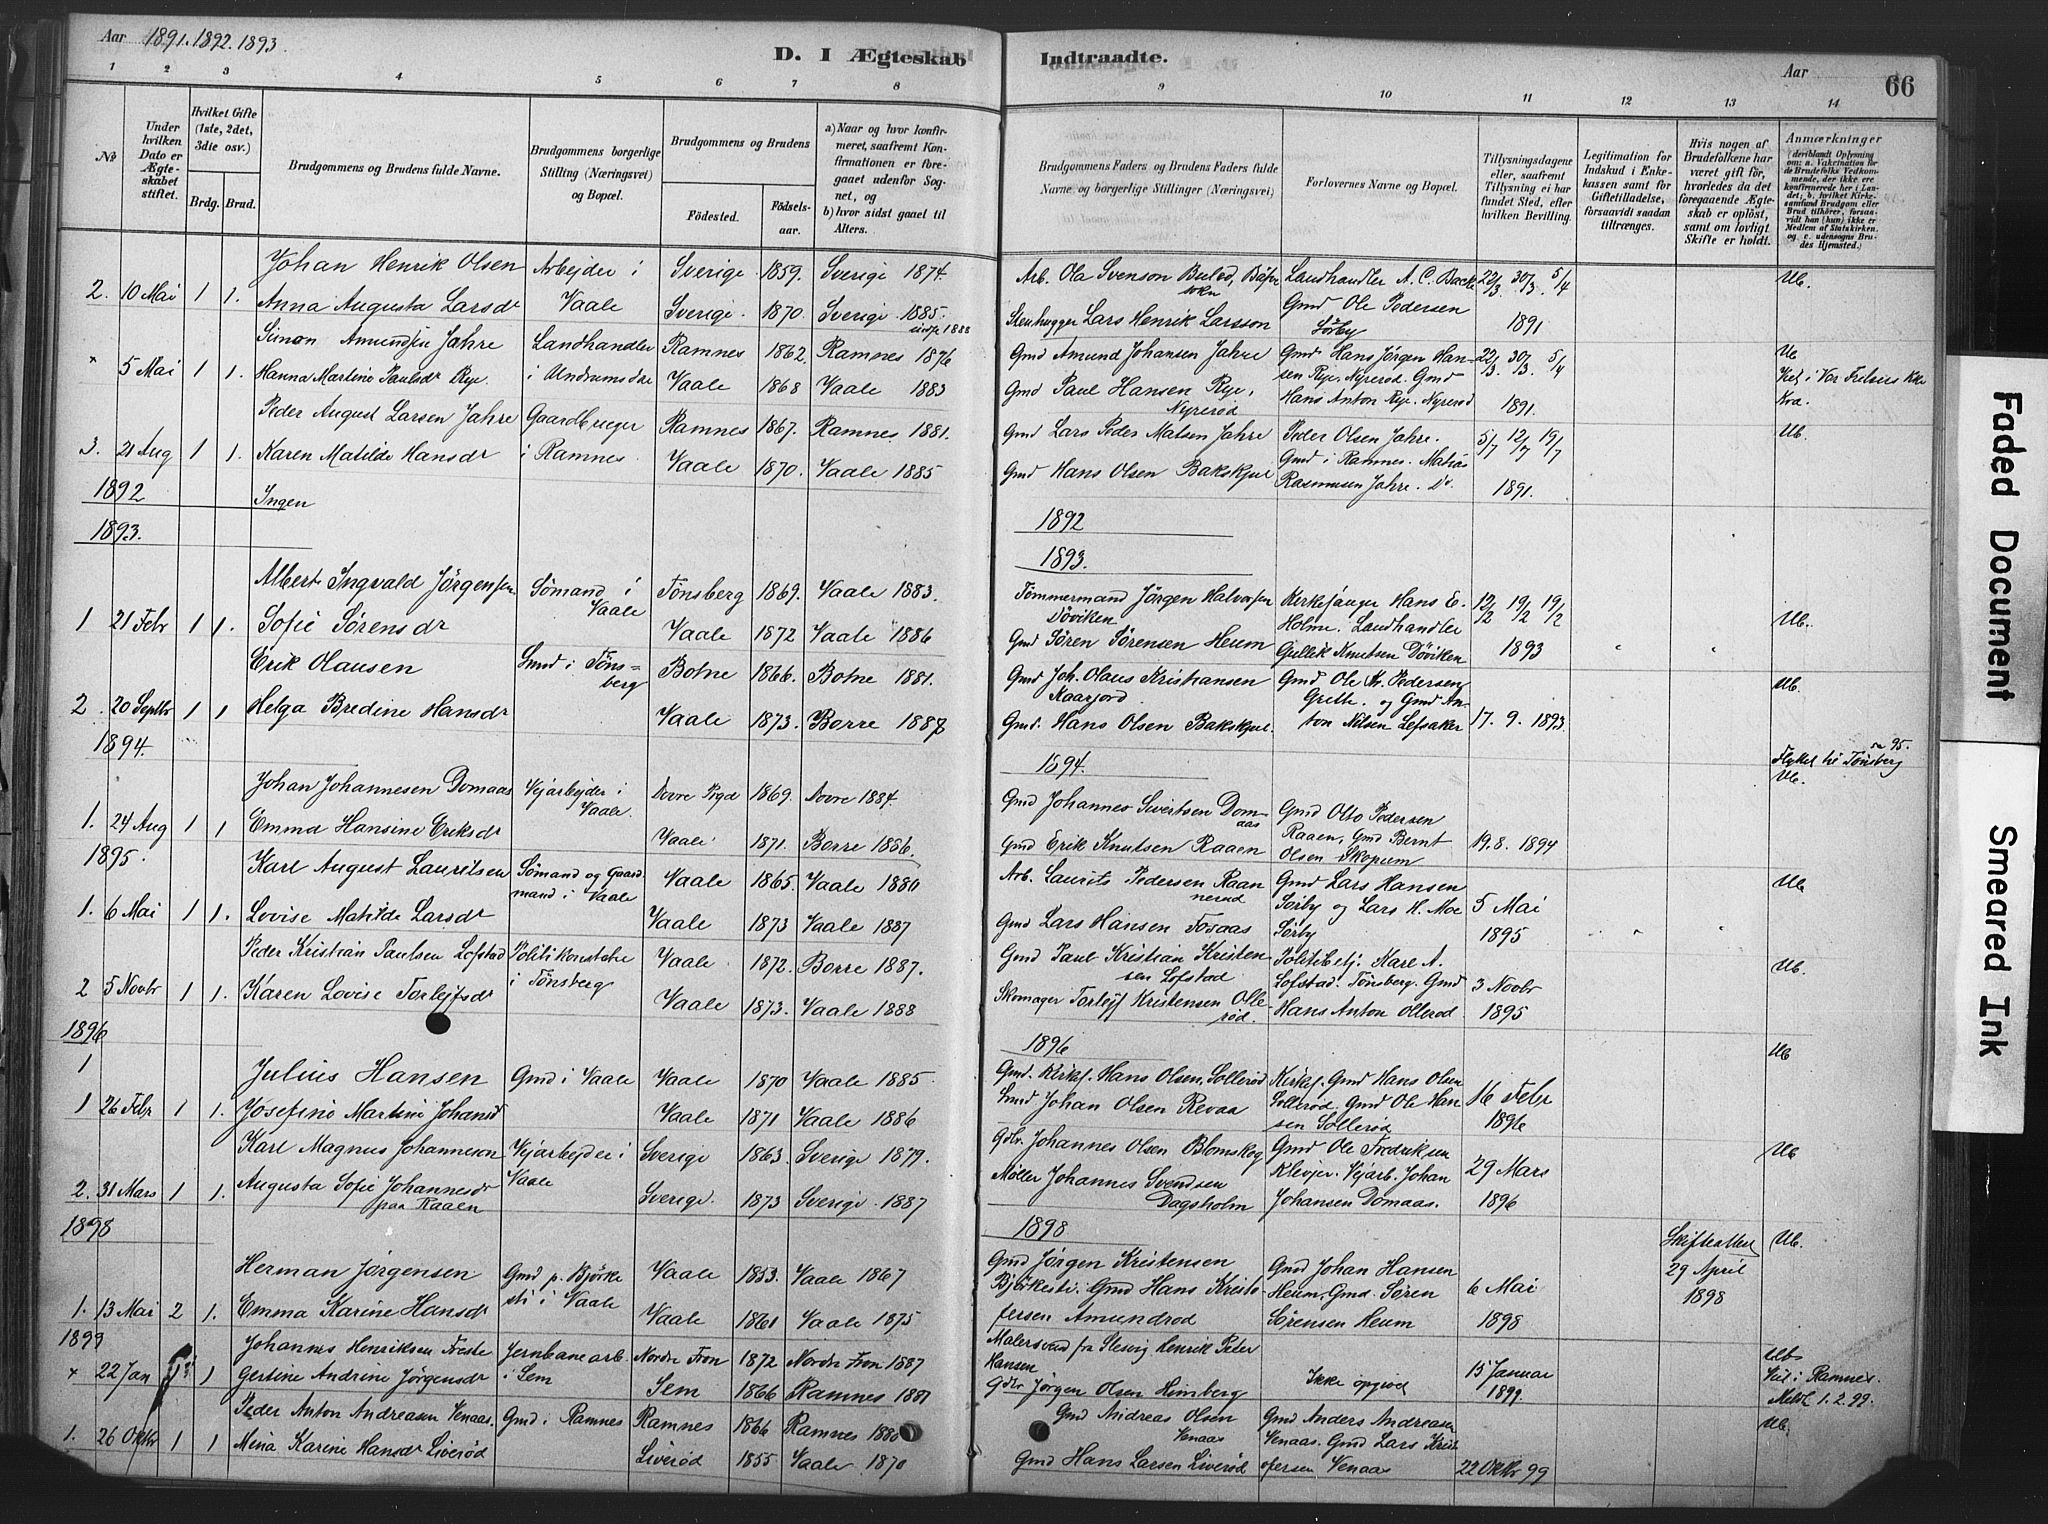 Aar 1891. 1892. 1893.
D. I Ægteskab Indtraadte.
Aar
66
1 2 3 4 5 6 7 8 9 10 11 12 13 14
No
Under hvilken Dato er Ægteskabet stiftet.
Hvilket Gifte (1ste, 2det, 3die osv.)
Brdg. Brud.
Brudgommens og Brudens fulde Navne.
Brudgommens borgerlige Stilling (Næringsvei) og Bopæl.
Brudgommens og Brudens
Fødested. Fødselsaar.
a) Naar og hvor konfirmeret, saafremt Konfirmationen er foregaaet udenfor Sognet, og
b) hvor sidst gaaet til Alters.
Brudgommens Faders og Brudens Faders fulde Navne og borgerlige Stillinger (Næringsvei)
Forlovernes Navne og Bopæl.
Tillysningsdagene eller, saafremt Tillysning ei har fundet Sted, efter hvilken Bevilling.
Legitimation for Indskud i Enkekassen samt for Giftetilladelse, forsaavidt saadan tiltrænges.
Hvis nogen af Brudefolkene har været gift før, hvorledes da det foregaaende Ægteskab er opløst, samt om lovligt Skifte er holdt.
Anmærkninger
(deriblandt Oplysning om: a. Vakcination for de Brudefolks Vedkommende, der ikke ere konfirmerede her i Landet; b. hvilket Kirkesamfund Brudgom eller Brud tilhører, forsaavidt han (hun) ikke er Medlem af Statskirken, og c. udensogns Brudes Hjemsted.)
Johan Henrik Olsen Arbejder i Sverige 1859. Sverige 1874 Arb. Ola Svenson Landhandler A. C. Backe 22/3. 30/3. 5/4 Ub.
2. 10 Mai 1 1. Anna Augusta Larsdr Vaale Sverige. 1870. Sverige 1885. Stenhugger Lars Henrik Larsson Gmd Ole Pedersen Sørby 1891
Simon Amundsen Jahre Landhandler Ramnes 1862. Ramnes 1876 Gmd Amund Johansen Jahre Gmd Hans Jørgen Hansen Rye. Nyrerød. Gmd 22/3. 30/3. 5/4 Ub
" 5 Mai 1 1. Hanna Martine Paulsdr Rye. i Vaale 1868 Vaale 1883 Gmd Paul Hansen Rye, Nyrerød Hans Anton Rye. Nyrerød 1891. Viet i Vor Frelsers
Peder August Larsen Jahre Gaardbruger Ramnes 1867. Ramnes 1881. Gmd Lars Peder Matsen Jahre Peder Olsen Jahre. 5/7 12/7 19/7 Ub.
3. 21 Aug 1 1. Karen Matilde Hansdr i Ramnes. Vaale 1870. Vaale 1885 Gmd Hans Olsen Bakskjul Gmd i Ramnes. Matias Rasmusen Jahre. Do. 1891.
1892 Ingen 1892
1893. 1893.
Albert Ingvald Jørgensen Sømand i Vaale Tønsberg 1869. Vaale 1883. Tømmermand Jørgen Halvorsen Døviken Kirkesanger Hans E. 12/2 19/2 19/2
1 21 Febr 1 1. Sofie Sørensdr Vaale 1872 Vaale 1886 Gmd Søren Sørensen Heum Holme. Landhandler Gullik Knutsen Døviken 1893 Ub.
Erik Olausen Smd i Tønsberg Botne 1866. Botne 1881. Gmd Joh. Olaus Kristiansen Gmd Ole Kr. Pedersen Ub.
2 20 Septbr 1 1 Helga Bredine Hansdr Vaale 1873. Borre 1887 Gmd. Hans Olsen Bakskjul. Grette. og Gmd Anton Nilsen Lefsaker 17. 9. 1893
1894. 1894. Flyttet til Tønsberg 95.
Johan Johannesen Domaas Vejarbejder i Vaale Dovre Pgd 1869. Dovre 1884. Gmd Johannes Sivertsen Domaas Gmd Otto Pedersen Ub.
1. 24 Aug 1 1 Emma Hansine Eriksdr Vaale 1871. Borre 1886. Gmd Erik Knutsen Raaen Raaen, Gmd Bernt Olsen Skopum 19. 8. 1894
1895.
Karl August Lauritsen Sømand og Gaardmand i Vaale Vaale 1865. Vaale 1880 Arb. Laurits Pedersen Raannerud Gmd Lars Hansen Ub
1. 6 Mai 1 1. Lovise Matilde Larsdr Vaale 1873 Vaale 1887 Gmd Lars Hansen Fosaas Sørby og Lars H. Moe Sørby 5 Mai 1895
Peder Kristian Paulsen Lofstad Politikonstabe Vaale 1872. Borre 1887. Gmd Paul Kristian Kristensen Lofstad Politibetj. Karl A. Ub.
2 5 Novbr 1 1. Karen Lovise Torlejfsdr i Tønsberg Vaale 1873. Vaale 1888 Skomager Torlejf Kristensen Ollerød. Lofstad. Tønsberg. Gmd Hans Anton Ollerød 3 Novbr 1895
1896 1896
1 Julius Hansen Gmd i Vaale Vaale 1870 Vaale 1885. Gmd. Kirkes. Hans Olsen, Sollerød Kirkes. Gmd Hans Olsen Ub
1 26 Febr 1 1. Josefine Martine Johansd Vaale 1871 Vaale 1886 Gmd Johan Olsen Revaa Sollerød. Gmd Ole Hansen Sollerød 16 Febr 1896
Karl Magnus Johanneson Vejarbejder i Vaale Sverige 1863. Sverige 1879. Gdbr. Johannes Olsen Blomskog Gmd Ole Fredriksen Ub
2. 31 Mars 1 1. Augusta Sofie Johannesdr paa Raaen Sverige. 1873 Sverige. 1887 Møller Johannes Svendsen Dagsholm Klevjer. Vejarb. Johan Johansen Domaas. 29 Mars 1896
1898 1898
Herman Jørgensen Gmd p. Bjørkesti i Vaale Vaale 1853. Vaale 1867 Gmd Jørgen Kristensen Gmd Johan Hansen Skifteattest 29 April 1898 Ub.
1. 13 Mai 2 1. Emma Karine Hansdr Vaale 1861 Vaale 1875 Bjørkesti. Gmd Hans Kristofersen Amundrød Heum. Gmd. Søren Sørensen Heum 6 Mai 1898
1899
Johannes Henriksen Freste Jernbanearb. Nordre Fron 1872 Nordre Fron 1887 Malersvend fra Slesvig Henrik Peter Hansen 15 Januar Ub
+ 22 Jan 1 Gertine Andrine Jørgensdr i Sem Sem 1866 Ramnes 1881 Gdbr Jørgen Olsen Himberg Ikke opgivet 1899. Viet i Ramnes. Meldt 1.2.99.
Peder Anton Andreasen Venaas. Gmd i Ramnes Ramnes 1866 Ramnes 1880 Gmd Andreas Olsen Venaas Gmd Anders Andreasen Ub.
1. 26 Oktbr 1 1 Mina Karine Hansdr Liverød Liverød 1855 Vaale 1870 Gmd Hans Larsen Liverød Venaas. Gmd Lars Kristofersen Venaas 22 Oktbr 99
Faded Document
Smeared Ink